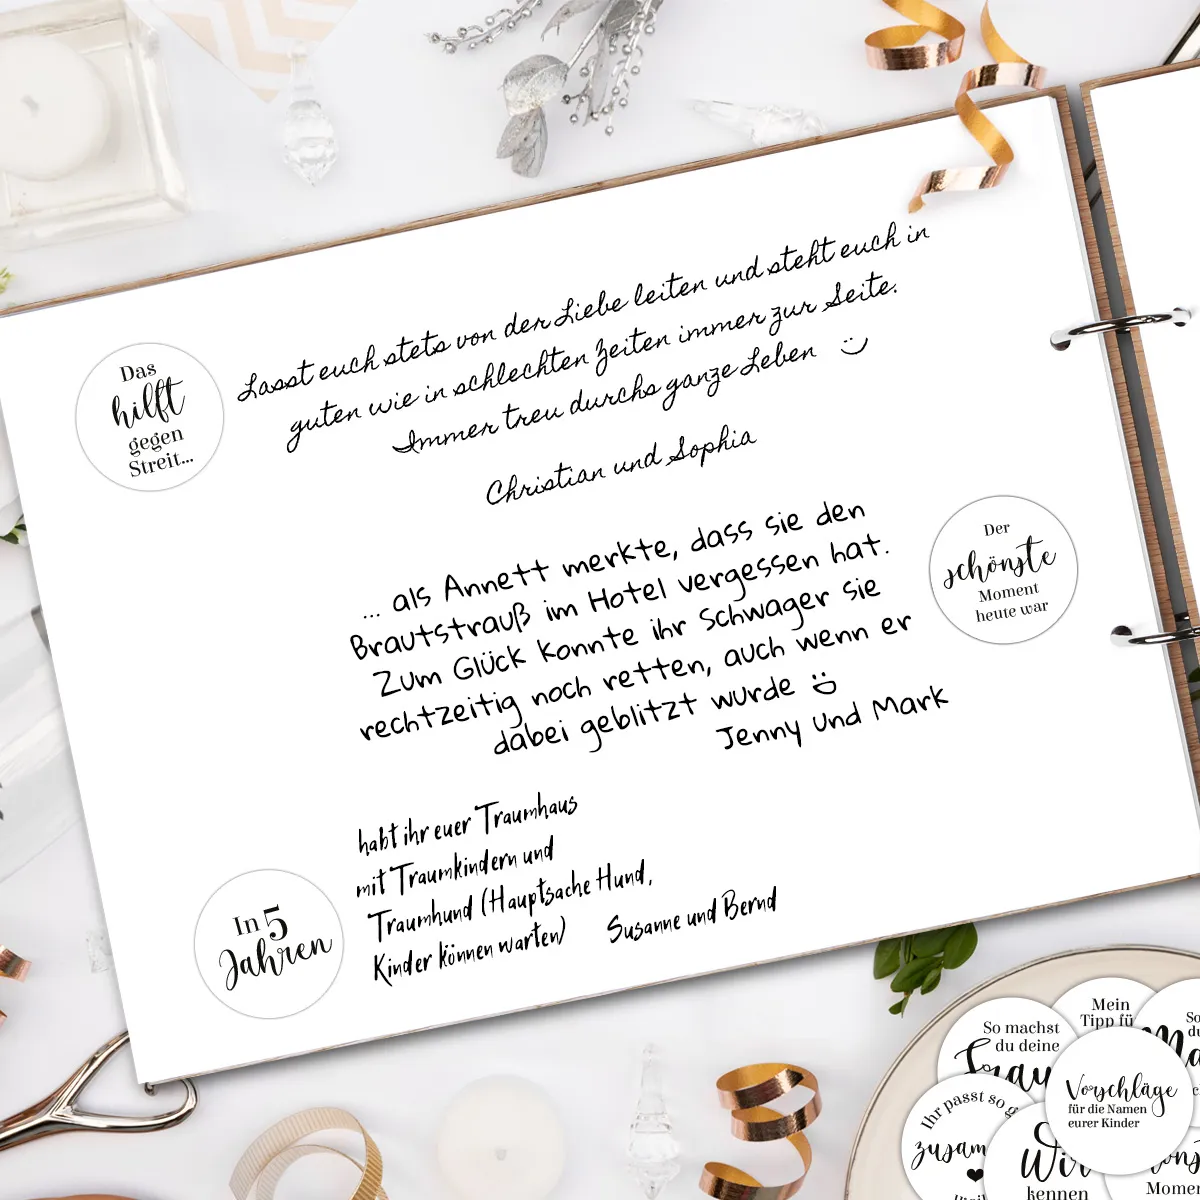 Das
hilft
gegen
Streit...
Lasst euch stets von der Liebe leiten und steht euch in
guten wie in schlechten Zeiten immer zur Seite.
Immer treu durchs ganze Leben
Christian und Sophia
... als Annett merkte, dass sie den
Brautstrauß im Hotel vergessen hat.
Zum Glück konnte ihr Schwager sie
rechtzeitig noch retten, auch wenn er
dabei geblitzt wurde
Jenny und Mark
Der
schönste
Moment
heute war
In 5
Jahren
habt ihr euer Traumhaus
mit Traumkindern und
Traumhund (Hauptsache Hund,
Kinder können warten)
Susanne und Bernd
So machst
du deine
Mein
Tipp fü
So
du
Ma
Vorschläge
für die Namen
eurer Kinder
Ihr passt so g
zusam
Wir
kennen
Momen